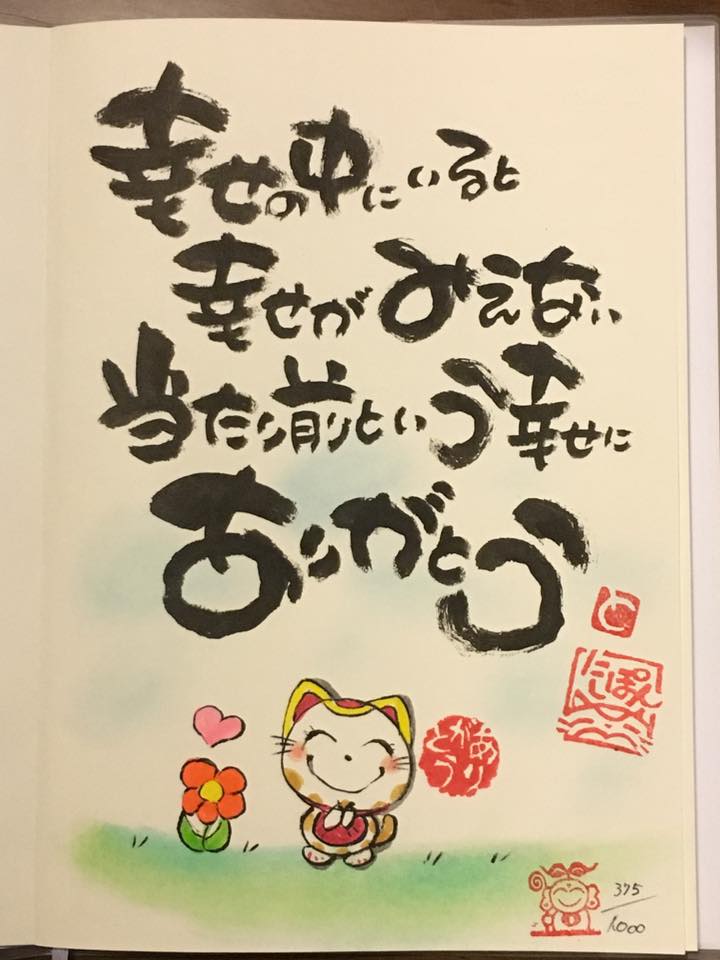 幸せの中にいると
幸せが みえない
当たり前という幸せに
ありがとう
にっぽん
ありがとう
375/1000